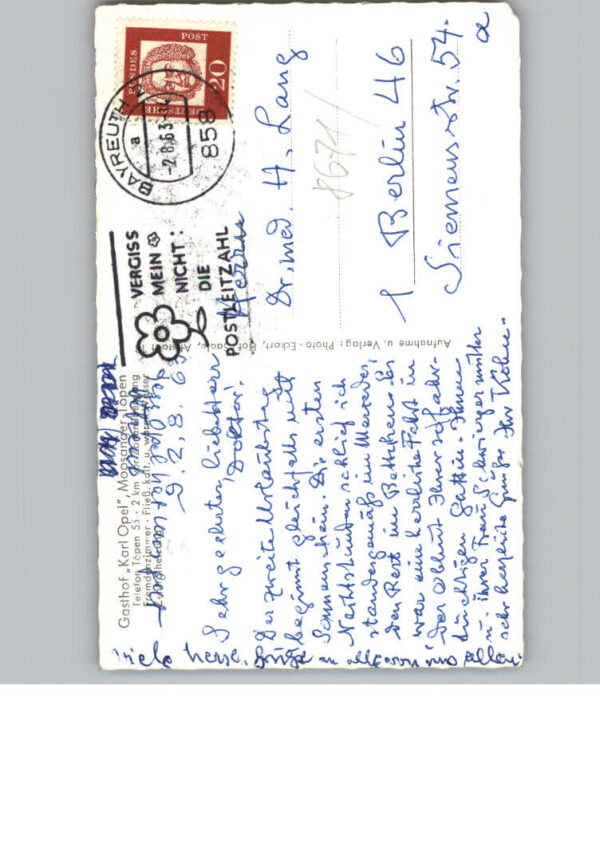 Gasthof „Karl Opel", Moosanger Töpen
Telefon Töpen 55 · 2 km
Fremdenzimmer · Fließ. kalt. u. warm. Wasser
D. 2. 8. 63
Sehr geehrter, lieber Herr
Doktor!
Der zweite Urlaubstag
beginnt gleichfalls mit
Sonnenschein. Die ersten
Nachtstunden schlief ich
standesgemäß im Mercedes,
den Rest im Bettchen. Es
war eine herrliche Fahrt in
der Obhut Ihrer
tüchtigen Gattin. Ihnen
u. Ihrer Frau Schwiegermutter
sehr herzliche Grüße Ihr
viele herzl. Grüße an alle von uns allen.
Aufnahme u. Verlag: Photo-Eckart, Hof/Saale
DEUTSCHE BUNDESPOST
20
BAYREUTH
a
-2.8.63
858
VERGISS
MEIN
NICHT:
DIE
POSTLEITZAHL
Herrn
Dr. med. H. Lang
8671/
1 Berlin 46
Siemensstr. 54
a